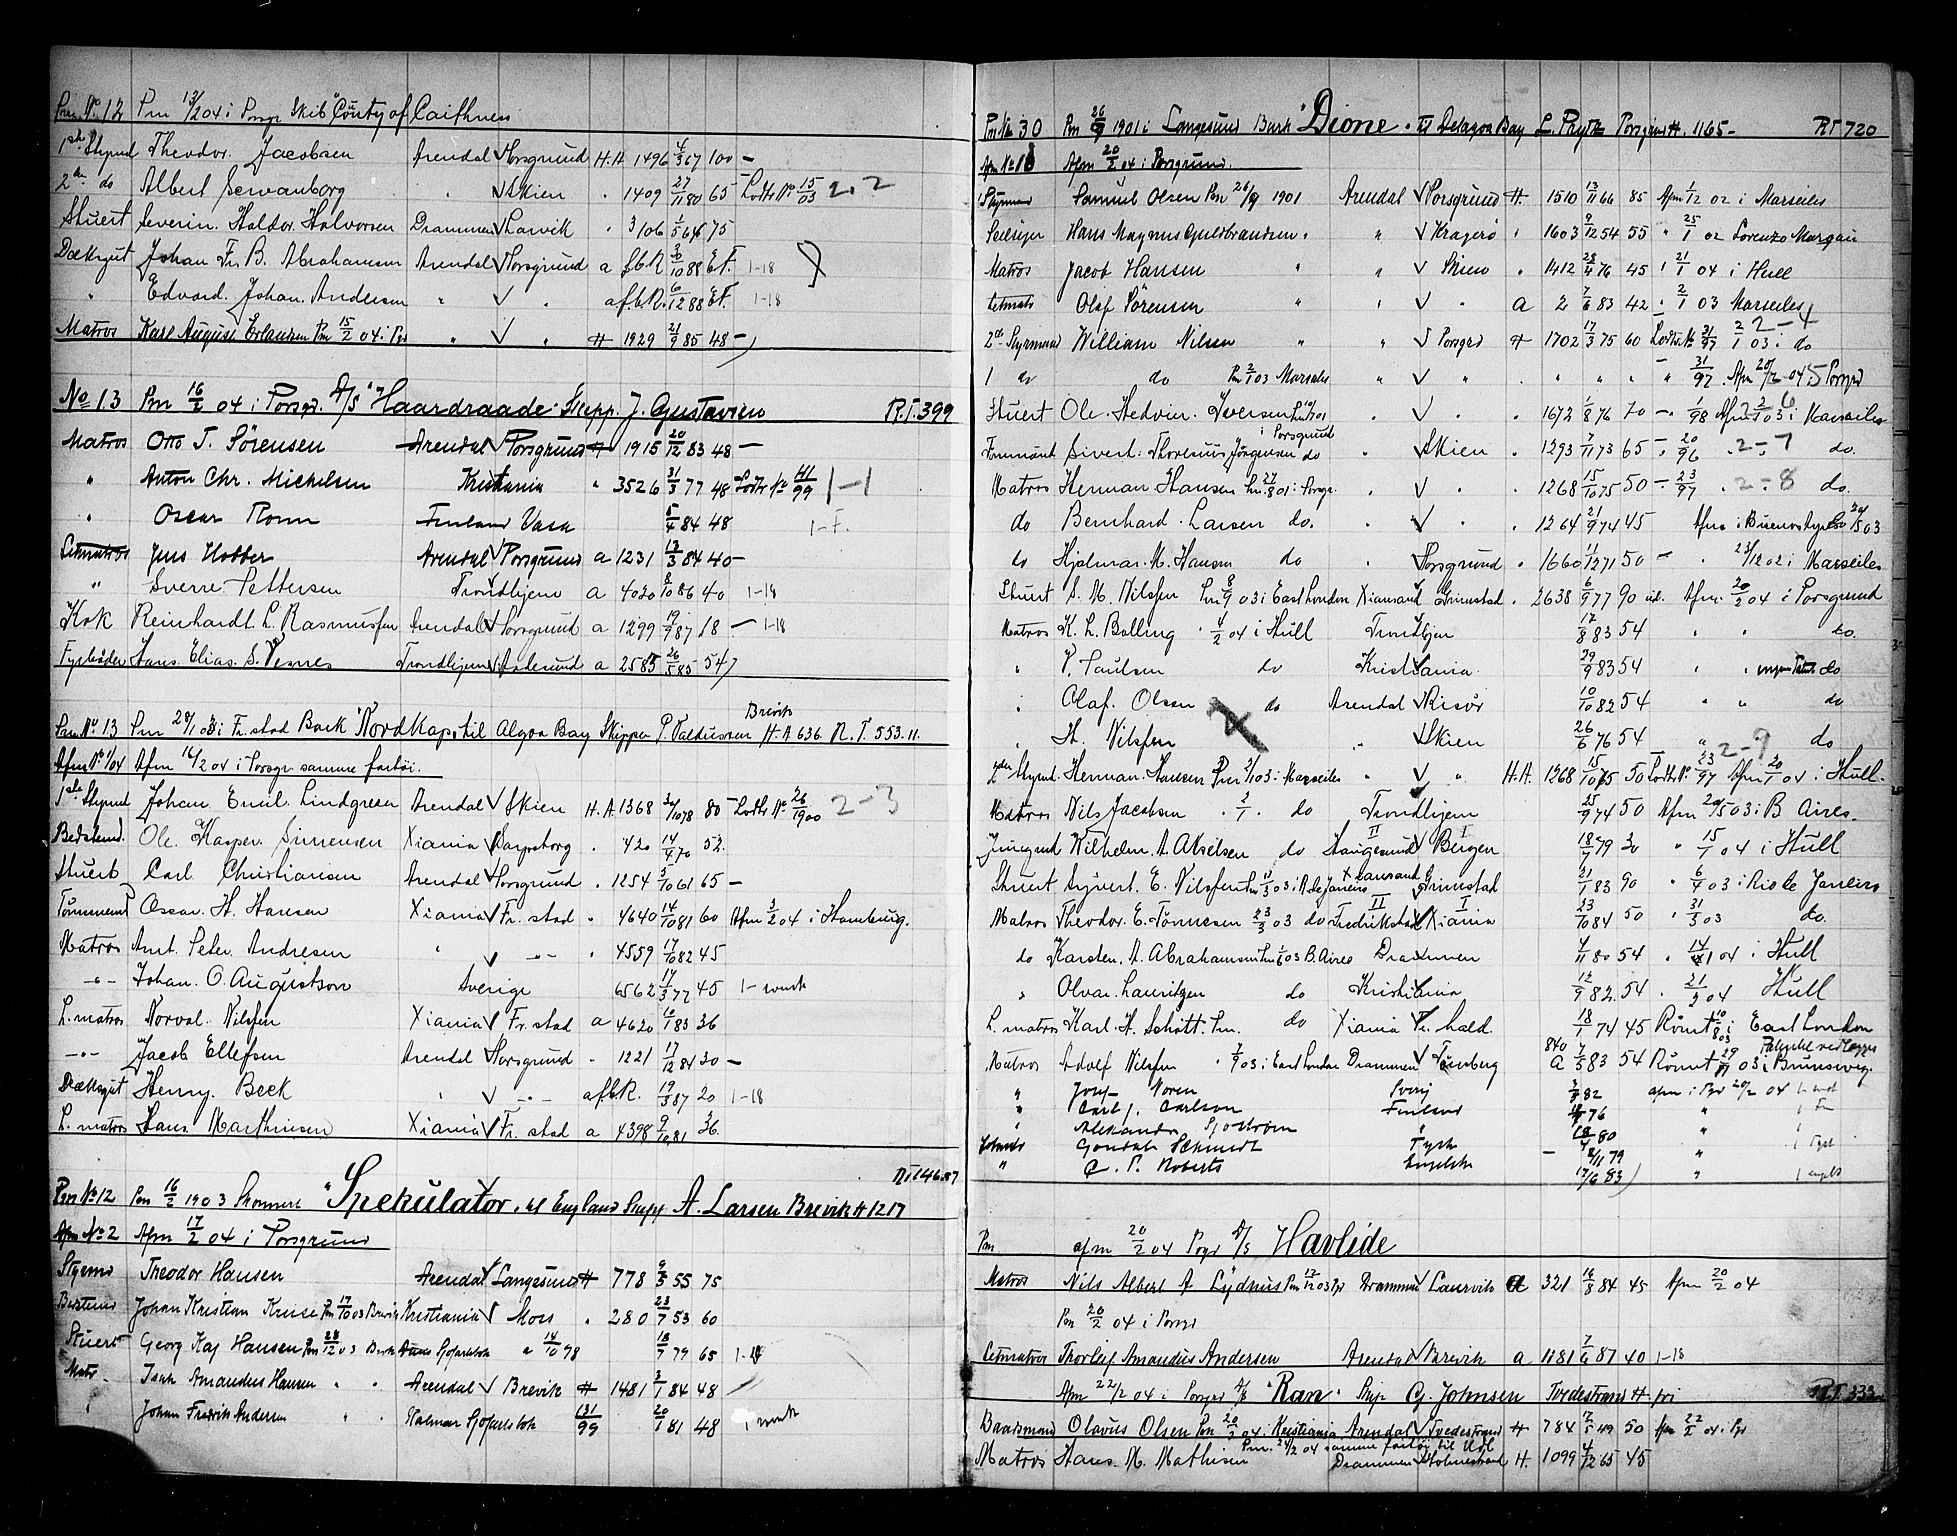 Pm. No. 12 Pm 13/2 04 i Porsgr Skib "County of Caithness
1ste Styrmd Theodor Jacobsen Arendal Porsgrund H.A 1496 4/3 67 100 —
2den do Albert Arendal " Skien " 1409 27/11 80 65 Lods No 15/03 2-2
Stuert Severin Haldor Halvorsen Drammen Larvik " 3106 1/5 64 75
Dæksgut Johan Fr. B. Abrahamsen Arendal Porsgrund a afbR 3/10 88 EF. 1-18
" Edvard Johan Andersen " " afbR. 6/12 88 EF. 1-18
Matros Karl August Erlandsen Pm 15/2 04 i Pgr " " H 1929 21/9 85 48 —
No 13 Pm 16/2 04 i Porsgr. D/S "Haardraade" Skipp. J. Gustavsen R.T. 399
Matros Otto T. Sörensen Arendal Porsgrund H 1915 20/12 83 48 —
" Anton Chr. Michelsen Kristiania " 3526 31/3 77 48 Lods No 41/99 1-1
" Oscar Ronn Finland Vasa 5/4 84 48 1-F.
Letmatros Jens Hobber Arendal Porsgrund a 1231 13/3 84 40 —
" Sverre Pettersen Trondhjem a 4020 8/10 86 40 1-18
Kok Reinhardt L. Rasmussen Arendal Porsgrund a 1299 19/9 87 18 — 1-18
Fyrböder Hans Elias S. Vesnes Trondhjem Aalesund a 2585 26/5 85 54
Pm. No. 13 Pm 28/1 03 i Fr.stad Bark "Nordkap" til Algoa Bay Skipper P. Brevik H.A 636 R.T. 553.11.
Afm No. 1/04 Afm 16/2 04 i Porsgr. samme fartöi.
1ste Styrmd Johan Emil Lindgren Arendal Skien H.A. 1368 3/10 78 80 Lods No. 26/1900 2-3
Bedstemd. Ole Kasper Simensen Xiania Sarpsborg " 420 14/4 70 52.
Stuert Carl Christiansen Arendal Porsgrund " 1254 3/10 61 65 —
Tömmermd Oscar H. Hansen Xiania Fr.stad " 4640 14/10 81 60 Afm 3/2 04 i Hamburg.
Matros Ant. Peter Andresen " " 4559 17/10 82 45
" Johan O. Augustson Sverige 6562 17/3 77 45 1-svensk
L. matros Norval Nilssen Xiania Fr.stad a 4620 10/1 83 36
" Jacob Ellefsen Arendal Porsgrund " 1221 17/12 84 30 —
Dæksgut Henry Beck " " afbR. 19/3 87 20 1-18
L. matros Hans Marthinsen Xiania Fr.stad a 4398 9/10 81 36.
Pm No. 12 Pm 16/2 1903 Skonnert "Spekulator" til England Skipp A. Larsen Brevik H 1217 RT 146.87
Afm No. 2 Afm 17/2 04 i Porsgrund
Styrmd Theodor Hansen Arendal Langesund H 778 9/5 55 75
Bestmd Johan Kristian Kruse Pm 17/10 03 Brevik Kristiania Moss " 280 23/7 53 60
Stuert Georg Kaj Hansen Pm 28/12 03 Brvk Sjöfartsbok " 14/10 98 18/7 79 65 1-
Matr. Isak Amandus Hansen " " Arendal Brevik H 1481 3/1 84 48
" Johan Fredrik Andersen " " Kalmar Sjöfartsbok 131/99 20/1 81 48 1 svensk
Pm No 30 Pm 26/9 1901 i Langesund Bark "Dione" til Delagoa Bay L. Prytz Porsgrund H. 1165 — R.T. 720
Afm No 16 Afm 20/2 04 i Porsgrund.
Styrmand Samuel Olsen Pm 26/9 1901 Arendal Porsgrund H. 1510 13/11 66 85 Afm 1/12 02 i Marseiles
Seilskjer Hans Magnus Guldbrandsen " " Kragerø " 1603 9/12 54 55 " 25/1 02 Lorenzo Marques
Matros Jacob Hansen " " Skien " 1412 28/4 76 45 " 21/1 04 i Hull
Letmats Olaf Sörensen " " " a 2 7/6 83 42 " 2/1 03 Marseiles
2den Styrmand William Nilsen " " Porsgrd H 1702 17/3 75 60 Lods No 31/97 2/1 03 i do 2-4
1 do do Pm 2/1 03 Marseiles " " " " " " " 31/97 Afm 20/2 04 Porsgrd 5
Stuert Ole Hedvin Iversen " " " 1672 1/8 76 70 — " 1/98 Afm 2/1 03 i Marseiles 2-6
Tömmermd Sivert Thorenius Jörgensen i Porsgrund do " Skien " 1293 7/11 73 65 — " 20/96 " 2-7 do.
Matros Herman Hansen Pm. 27/8 01 i Porsgr. " " " 1268 15/10 75 50 — 23/97 " 2-8 do.
do Bernhard Larsen do. " " " 1264 21/9 74 45 Afm i Buenos Ayres 20/5 03
do Hjalmar M. Hansen do " Porsgrund " 1660 11/12 71 50 — " 23/12 02 i Marseiles
Stuert S. M. Nilssen Pm 8/9 03 i East London Xiansand Grimstad " 2638 6/9 77 90 ud. Afm 20/2 04 i Porsgrund
Matros K. L. Bolling " 4/2 04 i Hull Trondhjem 17/8 83 54 " " do.
" P. Paulsen do Kristiania 29/9 83 54 " " do
" Olaf Olsen do Arendal Risör 10/10 82 54 " " do
" H. Nilssen " Skien 26/6 76 54 " do 2-9
2den Styrmd. Herman Hansen Pm 2/1 03 i Marseiles " " H.A. 1268 15/10 75 50 Lods No. 23/97 Afm 20/1 04 i Hull.
Matros Nils Jacobsen " 2/1 " do Trondhjem 25/9 74 50 Afm 20/5 03 i B. Aires.
Jungmd Wilhelm A. Akselsen do Haugesund II Bergen I 18/7 79 30 " 15/1 04 i Hull
Stuert Syvert E. Nilssen Pm 11/3 03 i R. de Janeiro Xiansand Grimstad 21/1 83 90 " 6/4 03 i Rio de Janeiro
Matros Theodor E. Tönnesen 23/3 03 do Fredrikstad II Xiania I 23/10 84 50 " 31/5 03 do.
do Karsten A. Abrahamsen Pm 1/6 03 B. Aires Drammen 4/11 80 54 " 14/1 04 i Hull
" Olvar Lauritzen do Kristiania 12/9 82 54 " 21/3 04 Hull
L. matros Karl H. Schött Pm. do Xiania Fr. hald. 18/1 74 45 Römt 10/8 03 i East London
Matros Adolf Nilssen " 7/9 03 i East London Drammen Tönsberg 840 a 7/5 83 54 Römt 29/11 03 i Brunswig.
" Josef Noren Sverig 3/9 82 afm i Pgr 20/2 04
" Carl J. Carlson Finland 76 " 1 Fin
" Aleksander Sjöström " 18/4 80 " 1
" Schmidt Tysk — 8/11 79 " 1 Tysk
" C. P. Roberts Engelsk 17/6 83 " 1 engelsk
Pm afm 20/2 04 Pogr D/S Havlide
Matros Nils Albert A Lydnus Pm 17/12 03 Pgr Drammen Laurvik a 321 16/8 84 45 Afm 20/2 04
Pm 20/2 04 i Porsgr
Letmatros Thorleif Amandus Andersen Arendal Brevik a 1181 7/6 87 40 1-18
Afm 22/2 04 i Porsgr D/S "Ran" Skip G. Johnsen Tvedestrand H. fri R.T. 333
Baadsmand Olavus Olsen Pm 20/2 04 i Kristiania Arendal Tvedestrand H 784 17/5 49 50 Afm 22/2 04 i Pgr
Matros Hans M. Mathisen Pm. 24/2 04 samme fartöi til Udl Drammen Holmestrand H. 1099 4/12 65 45